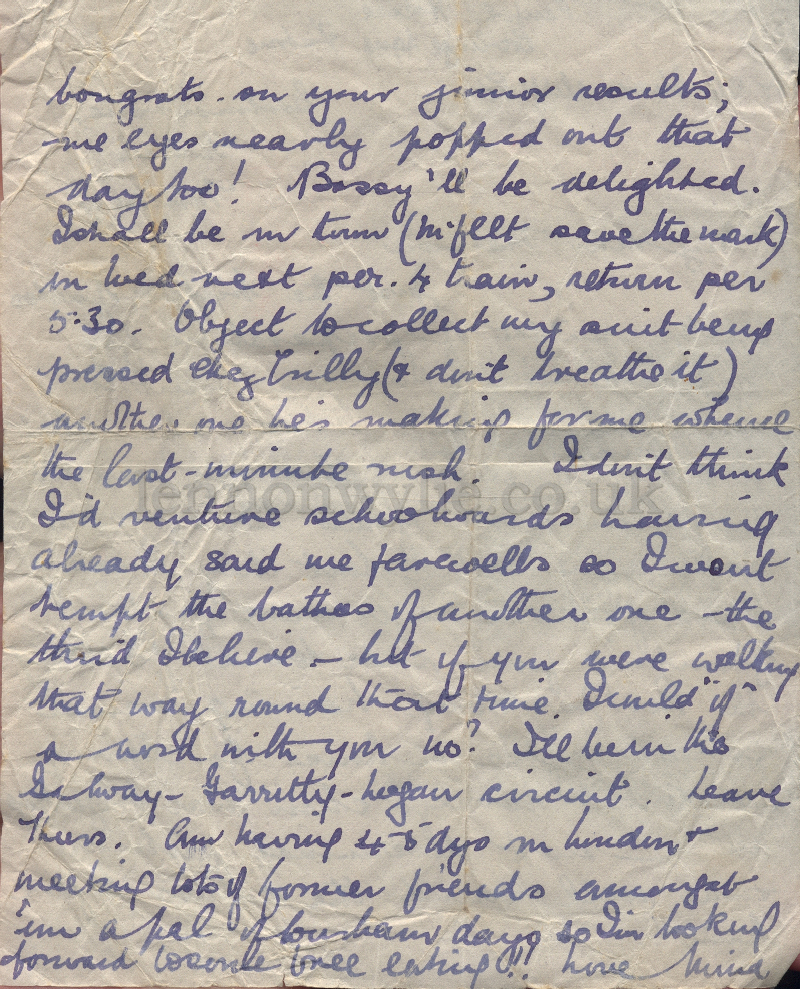 Congrats. on your junior results;
me eyes nearly popped out that
day too! Bossy'll be delighted.
I shall be in town (M'fllt save the mark)
on Wed next per. 4 train, return per
5.30. Object to collect my suit being
pressed chez Trilly (& don't breathe it)
another one he's making for me whence
the last-minute rush. I don't think
I'd venture schoolwards having
already said me farewells so I won't
tempt the bathos of another one - the
third I believe - but if you were walking
that way round that time. I could "if"
a word with you no? I'll be in the
Galway - Garritty - Hogan circuit. Leave
Thurs. Am having 4-5 dys in London &
meeting lots of former friends amongst
'em a pal of days so I'm looking
forward to some free eating!! Love Mina
lennonwylie.co.uk